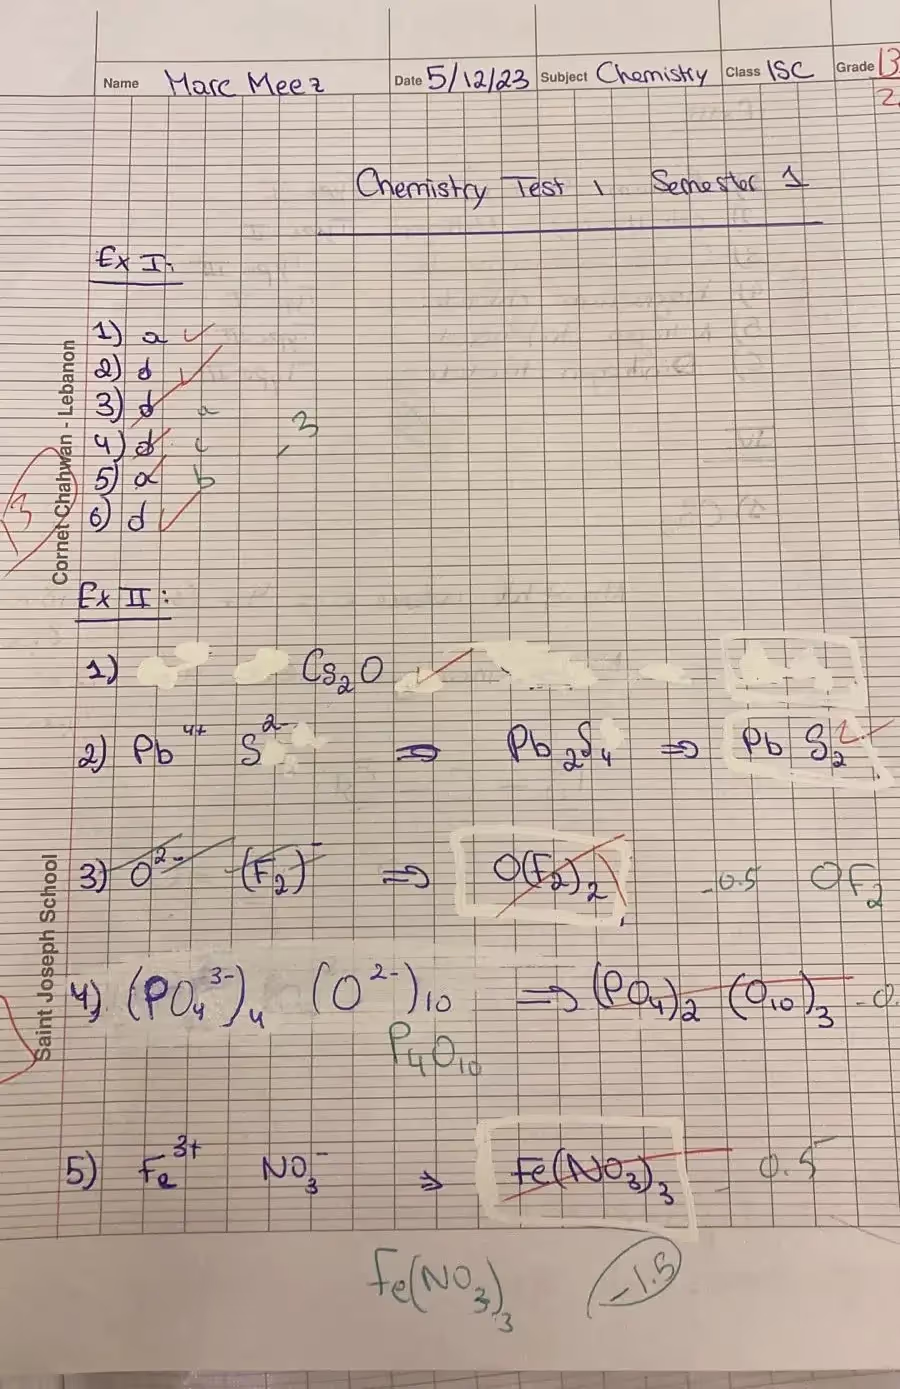 Name Marc Meez Date 5/12/23 Subject Chemistry Class 1SC Grade 13
2
Chemistry Test 1 Semester 1
Ex I:
1) a ✓
2) d ✓
3) d a
4) d c - 3
5) a b
6) d ✓
3
Cornet Chahwan - Lebanon
Ex II:
1) Cs₂O ✓
2) Pb⁴⁺ S²⁻ ⇒ Pb₂S₄ ⇒ Pb S₂
3) O²⁻ (F₂)⁻ ⇒ O(F₂)₂ -0.5 OF₂
4) (PO₄³⁻)₄ (O²⁻)₁₀ ⇒ (PO₄)₂ (O₁₀)₃ -0.
P₄O₁₀
Saint Joseph School
5) Fe³⁺ NO₃⁻ ⇒ Fe(NO₃)₃ - 0.5
Fe(NO₃)₃ -1.5